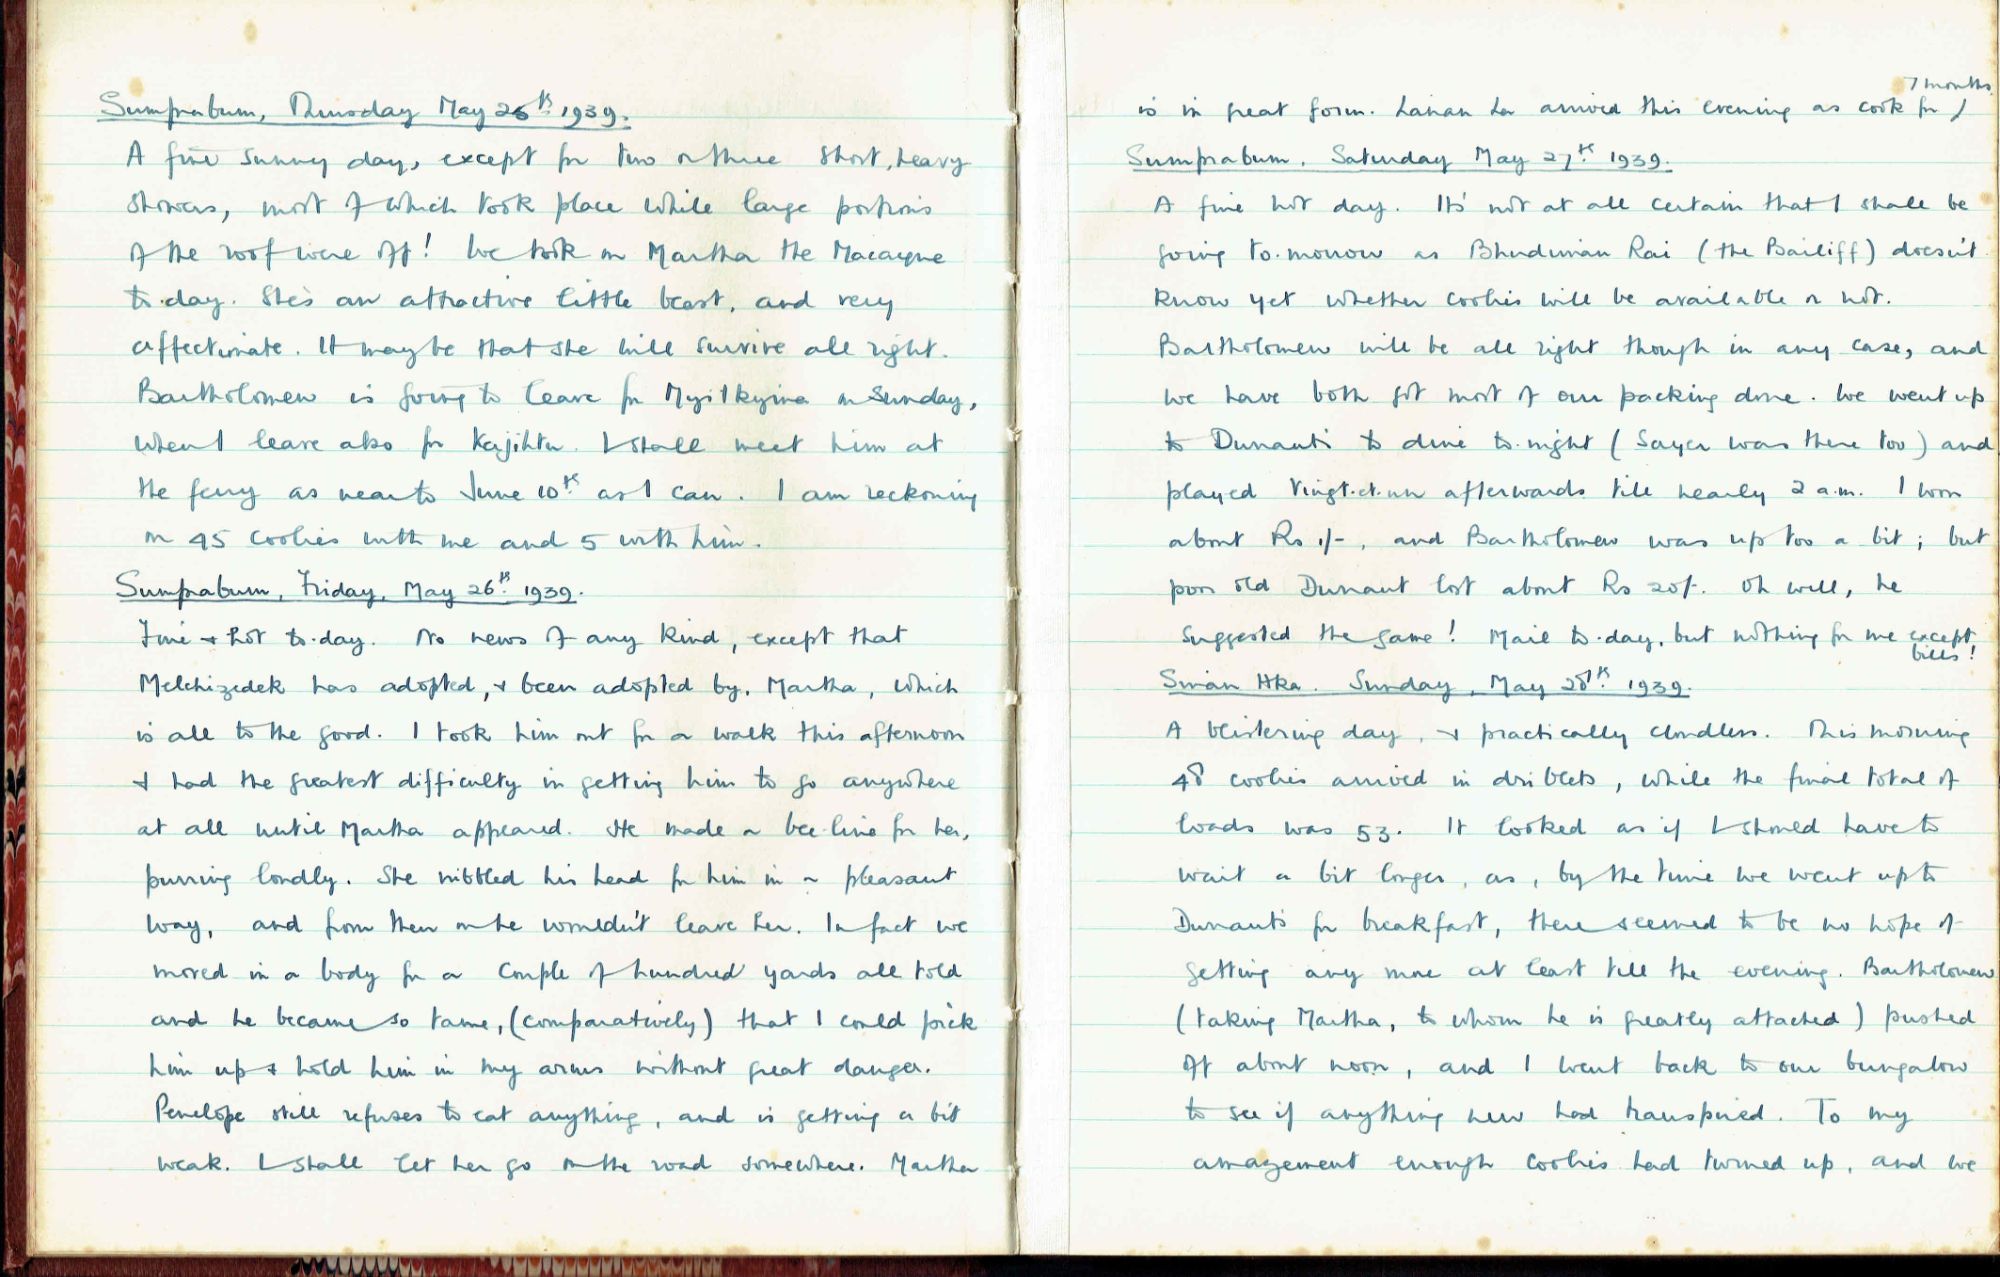 Sumprabum, Thursday May 25th 1939.
A fine sunny day, except for two or three short, heavy
showers, most of which took place while large portions
of the roof were off! We took on Martha the Macaque
to-day. She's an attractive little beast, and very
affectionate. It may be that she will survive all right.
Bartholomew is going to leave for Myitkyina on Sunday,
when I leave also for Kajihtu. I shall meet him at
the ferry as near to June 10th as I can. I am reckoning
on 45 coolies with me and 5 with him.
Sumprabum, Friday, May 26th 1939.
Fine & hot to-day. No news of any kind, except that
Melchizedek has adopted, & been adopted by, Martha, which
is all to the good. I took him out for a walk this afternoon
& had the greatest difficulty in getting him to go anywhere
at all until Martha appeared. He made a bee-line for her,
purring loudly. She nibbled his head for him in a pleasant
way, and from then on he wouldn't leave her. In fact we
moved in a body for a couple of hundred yards all told
and he became so tame, (comparatively) that I could pick
him up & hold him in my arms without great danger.
Penelope still refuses to eat anything, and is getting a bit
weak. I shall let her go on the road somewhere. Martha
7 months.
is in great form. Lahan La arrived this evening as cook for /
Sumprabum. Saturday May 27th 1939.
A fine hot day. It's not at all certain that I shall be
going to-morrow as Bhudiman Rai (the Bailiff) doesn't
know yet whether coolies will be available or not.
Bartholomew will be all right though in any case, and
we have both got most of our packing done. We went up
to Dunant's to dine to-night (Sayer was there too) and
played Vingt-et-un afterwards till nearly 2 a.m. I won
about Rs 1/-, and Bartholomew was up too a bit; but
poor old Dunant lost about Rs 20/-. Oh well, he
suggested the game! Mail to-day, but nothing for me except
bills!
Sinan Hka. Sunday, May 28th 1939.
A blistering day, & practically cloudless. This morning
48 coolies arrived in driblets, while the final total of
loads was 53. It looked as if I should have to
wait a bit longer, as, by the time we went up to
Dunant's for breakfast, there seemed to be no hope of
getting any more at least till the evening. Bartholomew
(taking Martha, to whom he is greatly attached) pushed
off about noon, and I went back to our bungalow
to see if anything new had transpired. To my
amazement enough coolies had turned up, and we